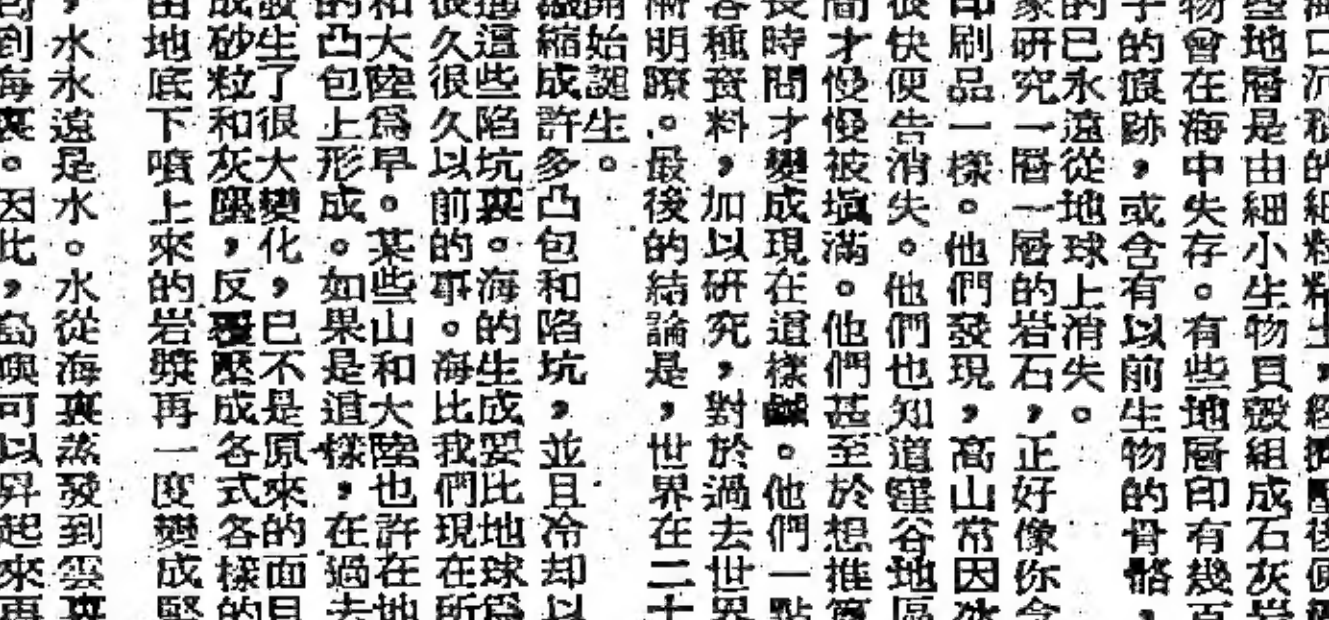 口沉積的細粒粘土,經擠壓後便
些地層是由細小生物貝殼組成石灰岩
物曾在海中失存。有些地層印有幾百
子的痕跡,或含有以前生物的骨骼,
的已永遠從地球上消失。
家研究一層一層的岩石,正好像你念
印刷品一樣。他們發現,高山常因冰
很快便告消失。他們也知道窪谷地區
間才慢慢被塡滿。他們甚至於想推算
長時間才變成現在這樣鹹。他們一點
各種資料,加以研究,對於過去世界
漸明瞭。最後的結論是,世界在二十
開始誕生。
凝縮成許多凸包和陷坑,並且冷却以
這些陷坑裏。海的生成要比地球爲
很久很久以前的事。海比我們現在所
和大陸爲早。某些山和大陸也許在地
的凸包上形成。如果是這樣,在過去
發生了很大變化,已不是原來的面目
成砂粒和灰塵,反覆壓成各式各樣的
由地底下噴上來的岩漿再一度變成堅
,水永遠是水。水從海裏蒸發到雲裏
到海裏。因此,島嶼可以昇起來再